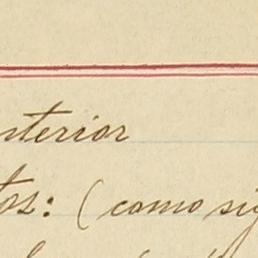 nterior
tos: (como sig